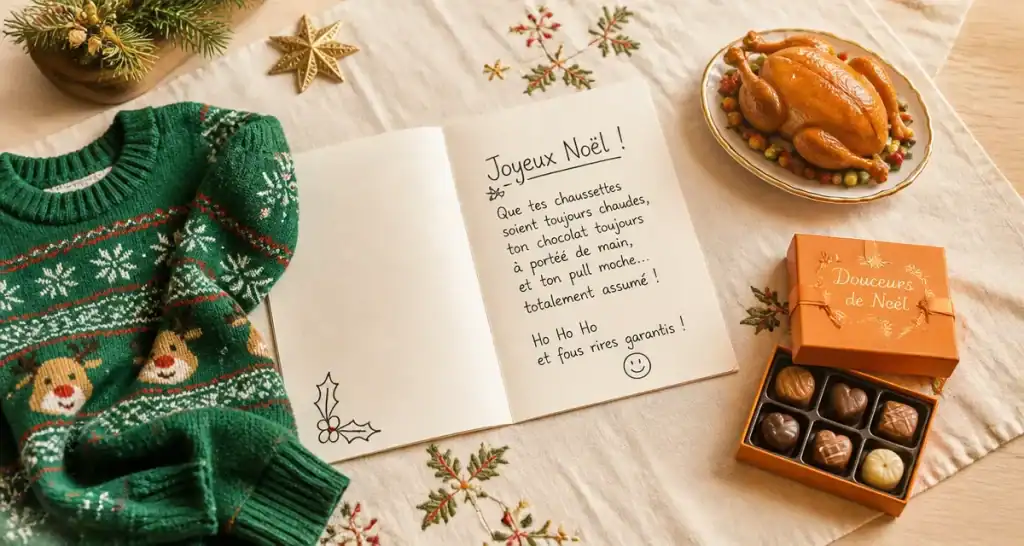 Joyeux Noël !
Que tes chaussettes
soient toujours chaudes,
ton chocolat toujours
à portéé de main,
et ton pull moche...
totalement assumé !
Ho Ho Ho
et fous rires garantis !
Douceurs
de Noël